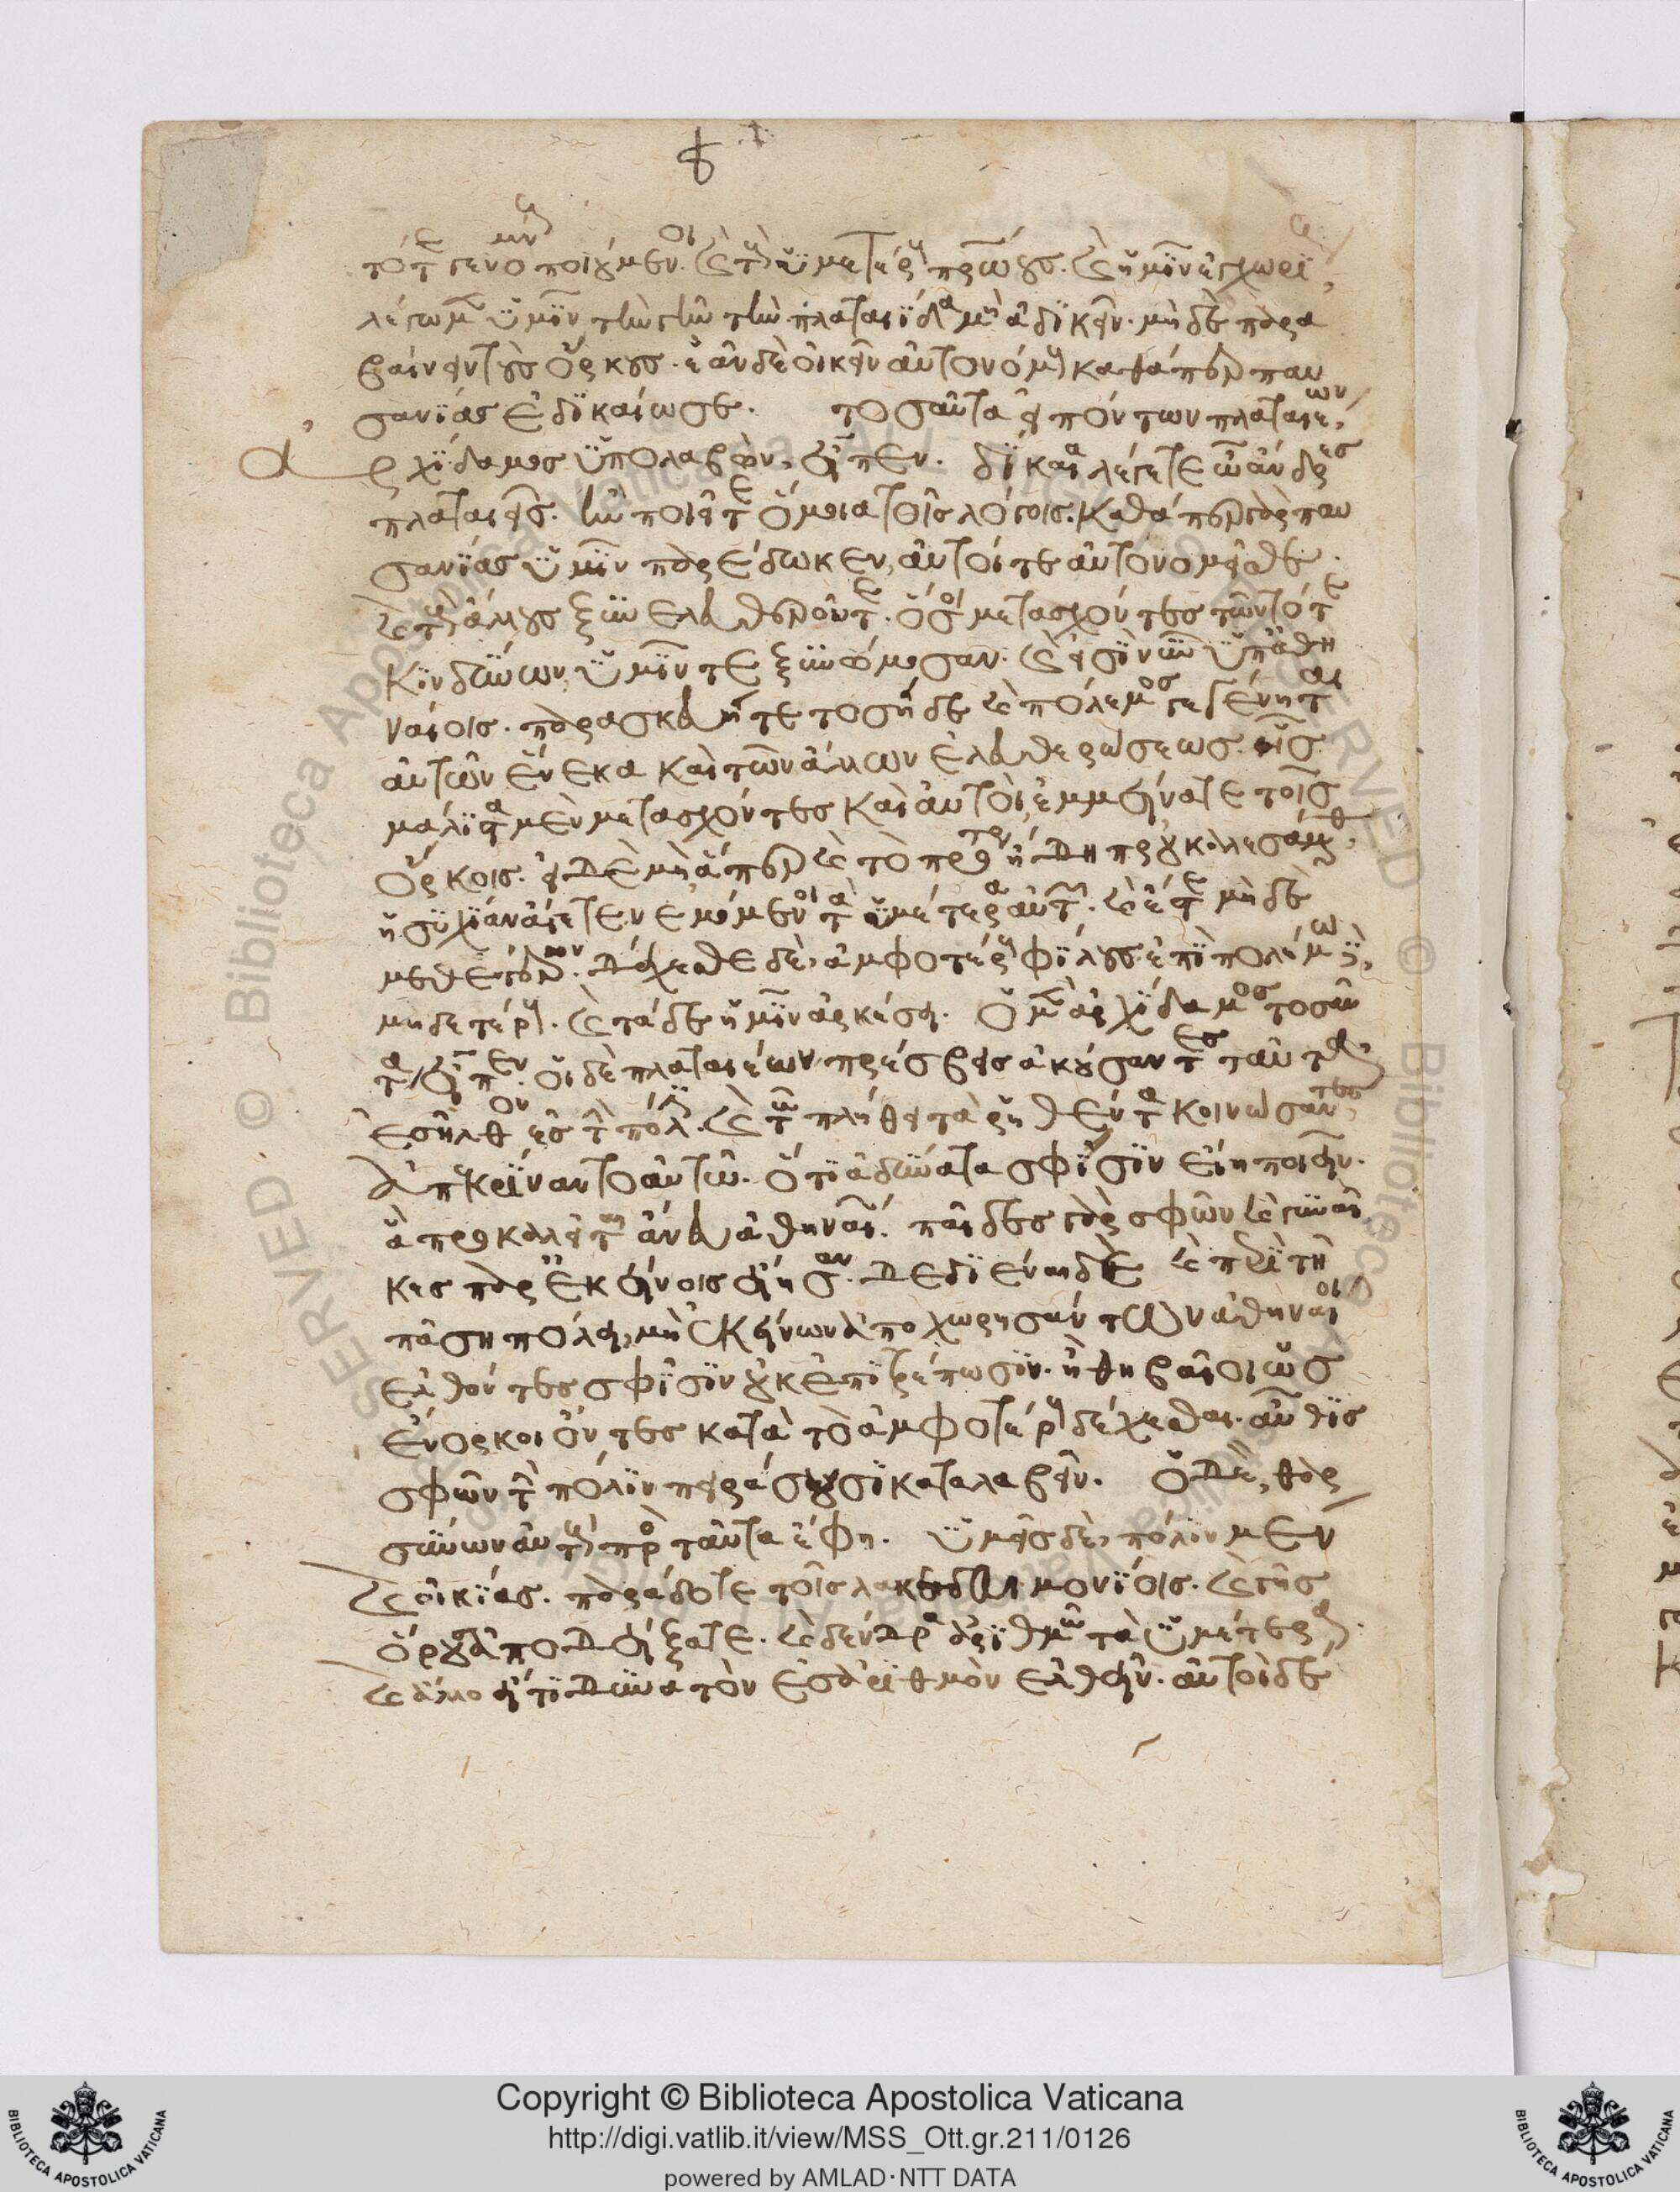 τότε γενομένους ποιούμενοι καὶ τοὺς ὑμετέρους πατρώους καὶ ἡμῖν ἐγχωρί,
λέγωμεν ὑμῖν τὴν γῆν τὴν πλαταιίδα μὴ ἀδικεῖν· μὴδὲ παρα
βαίνειν τοὺς ὅρκους· ἐᾶν δὲ οἰκεῖν αὐτονόμους καθάπερ παυ
σανίας ἐδικαίωσε. τοσαῦτα εἰπόντων πλαταιέων,
ἀρχίδαμος ὑπολαβὼν, εἶπεν. δίκαια λέγετε ὦ ἄνδρες
πλαταιεῖς. ἢν ποιεῖτε ὅμοια τοῖς λόγοις. καθάπερ γὰρ παυ
σανίας ὑμῖν παρέδωκεν, αὐτοί τε αὐτονομεῖσθε.
καὶ τοὺς ἄλλους ξυνελευθεροῦτε. ὅσοι μετασχόντες τῶν τότε
κινδύνων, ὑμῖν τε ξυνώμοσαν. καὶ εἰσὶ νῦν ὑπ' ἀθη
ναίοις. παρασκευή τε τοσήδε καὶ πόλεμος γεγένηται
αὐτῶν ἕνεκα καὶ τῶν ἄλλων ἐλευθερώσεως. ἧς
μάλιστα μὲν μετασχόντες καὶ αὐτοὶ ἐμμείνατε τοῖς
ὅρκοις. εἰ δὲ μὴ ἅπερ καὶ τὸ πρότερον ἤδη προὐκαλεσάμεθα.
ἡσυχίαν ἄγετε νεμόμενοι τὰ ὑμέτερα αὐτῶν. καὶ ἔστε μὴδὲ
μεθ' ἑτέρων. δέχεσθε δὲ, ἀμφοτέρους φίλους· ἐπὶ πολέμω δὲ,
μηδετέρους. καὶ τάδε ἡμῖν ἀρκέσει. ὁ μὲν ἀρχίδαμος τοσαῦ
τα εἶπεν. οἱ δὲ πλαταιέων πρέσβεις ἀκούσαντες ταῦτα,
ἐσῆλθον ἐς τὴν πόλιν. καὶ τῶ πλήθει τὰ ῥηθέντα κοινώσαντες,
ἀπεκρίναντο αὐτῶ. ὅτι ἀδύνατα σφίσιν εἴη ποιεῖν.
ἃ προκαλεῖται ἄνευ ἀθηναίων. παῖδες γὰρ σφῶν καὶ γυναῖ
κες παρ' ἐκείνοις εἴησαν. δεδιέναι δὲ καὶ περὶ τῆ
πάση πόλει, μὴ 'κείνων ἀποχωρησάντων ἀθηναῖοι
ἐλθόντες σφίσιν οὐκ ἐπιτρέπωσιν· ἢ θηβαῖοι ὡς
ἔνορκοι ὄντες κατὰ τὸ ἀμφοτέρους δέχεσθαι· αὖθις
σφῶν τὴν πόλιν πειράσουσι καταλαβεῖν. ὁ δὲ, θαρ
σύνων αὐτοὺς πρὸς ταῦτα ἔφη. ὑμεῖς δὲ, πόλιν μὲν
καὶ οἰκίας. παράδοτε τοῖς λακεδαιμονίοις. καὶ γῆς
ὅρους ἀποδείξατε. καὶ δένδρα ἀριθμῶ τὰ ὑμέτερα.
καὶ ἄλλο εἴ τι δυνατὸν ἐς ἀριθμὸν ἐλθεῖν. αὐτοὶ δὲ
Copyright © Biblioteca Apostolica Vaticana
http://digi.vatlib.it/view/MSS_Ott.gr.211/0126
powered by AMLAD·NTT DATA